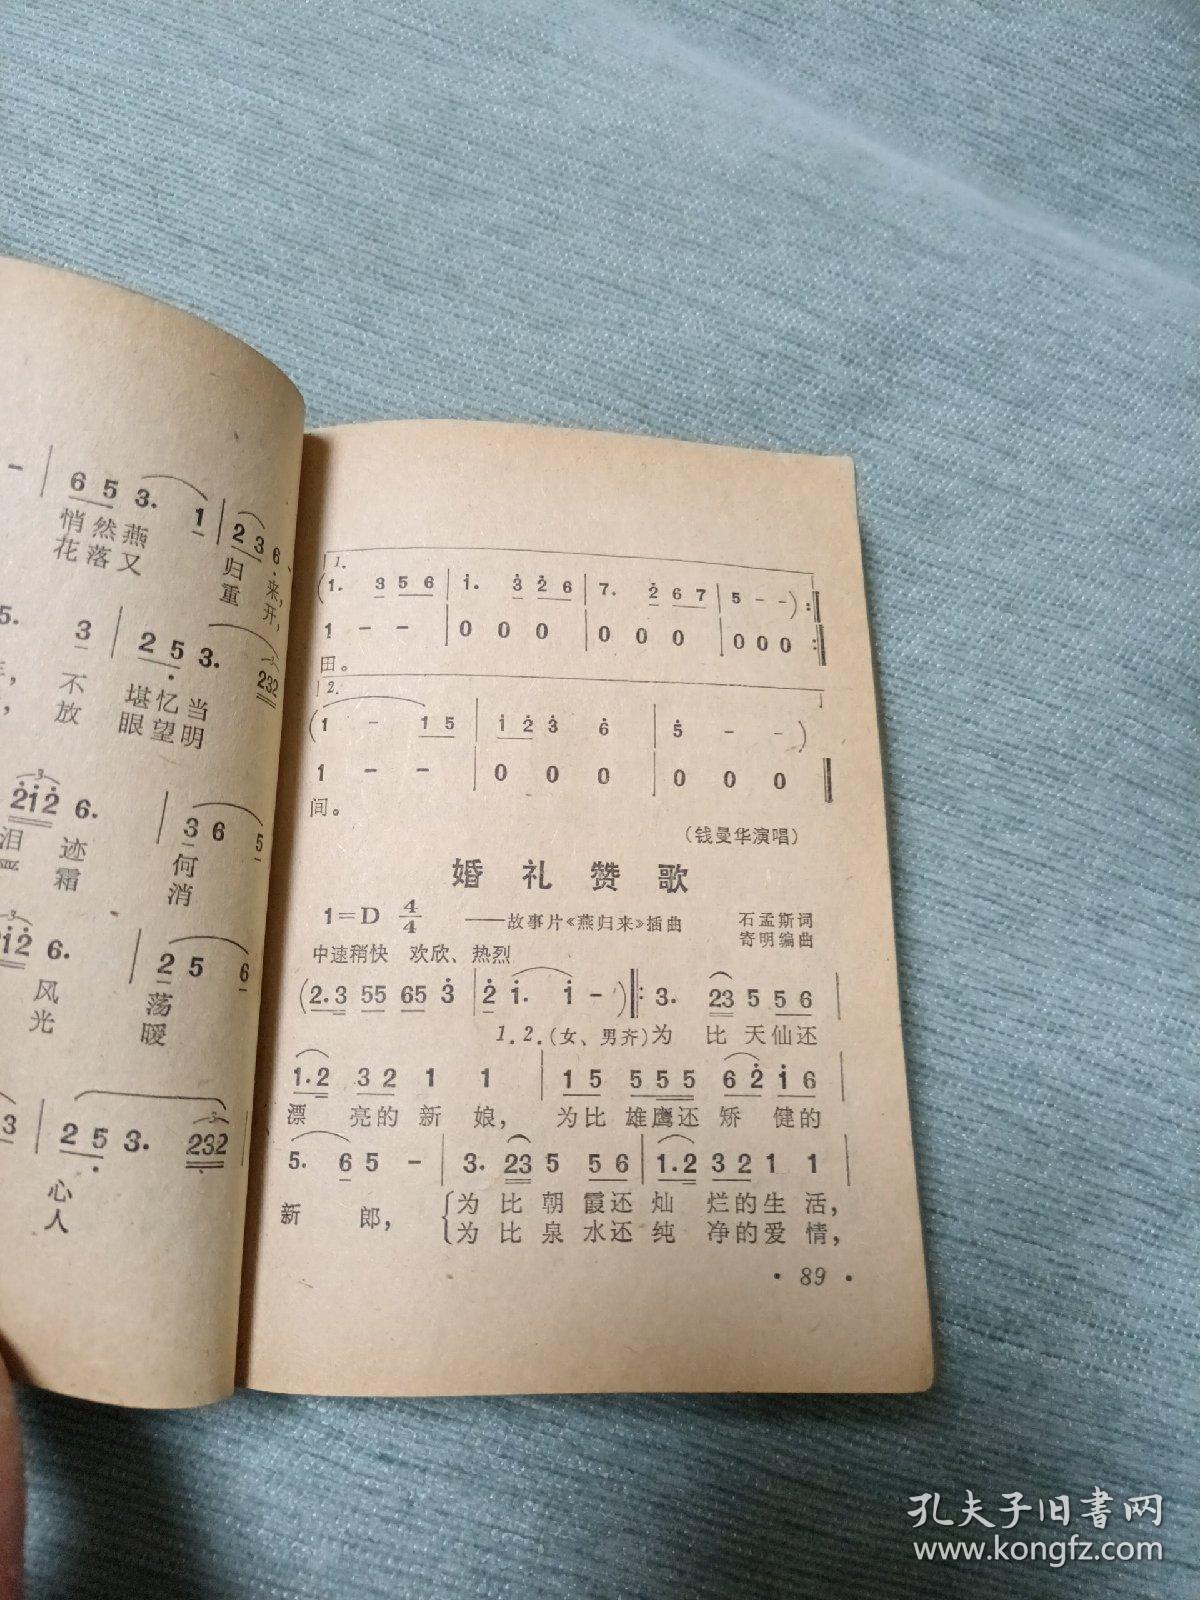 - | 6 5 3. 1 | 2 3 6
悄然燕 归 来,
花落又 重 开,
5. 3 | 2 5 3. 232
不 堪忆当
, 放 眼望明
3
2i2 6. | 3 6 5
泪 迹 何
严 霜 消
3
2i2 6. | 2 5 6
风 荡
光 暖
3 | 2 5 3. 232
心
人
1.
(1. 3 5 6 | i. 3 2 6 | 7. 2 6 7 | 5 - -) :‖
1 - - | 0 0 0 | 0 0 0 | 0 0 0 :‖
田。
2.
(1 - 1 5 | i 2 3 6 | 5 - -)
1 - - | 0 0 0 | 0 0 0 ‖
间。
(钱曼华演唱)
婚礼赞歌
1=D 4/4 ——故事片《燕归来》插曲 石孟斯词
寄明编曲
中速稍快 欢欣、热烈
(2.3 55 65 3 | 2 i. i -) ‖: 3. 23 5 5 6 |
1.2.(女、男齐)为 比 天仙还
1.2 3 2 1 1 | 1 5 5 5 5 6 2 i 6 |
漂 亮的 新 娘, 为比 雄鹰还 矫 健的
5. 6 5 - | 3. 23 5 5 6 | 1.2 3 2 1 1 |
新 郎, 为 比 朝 霞还 灿 烂的生 活,
为 比 泉 水还 纯 净的爱 情,
· 89 ·
孔夫子旧书网
www.kongfz.com